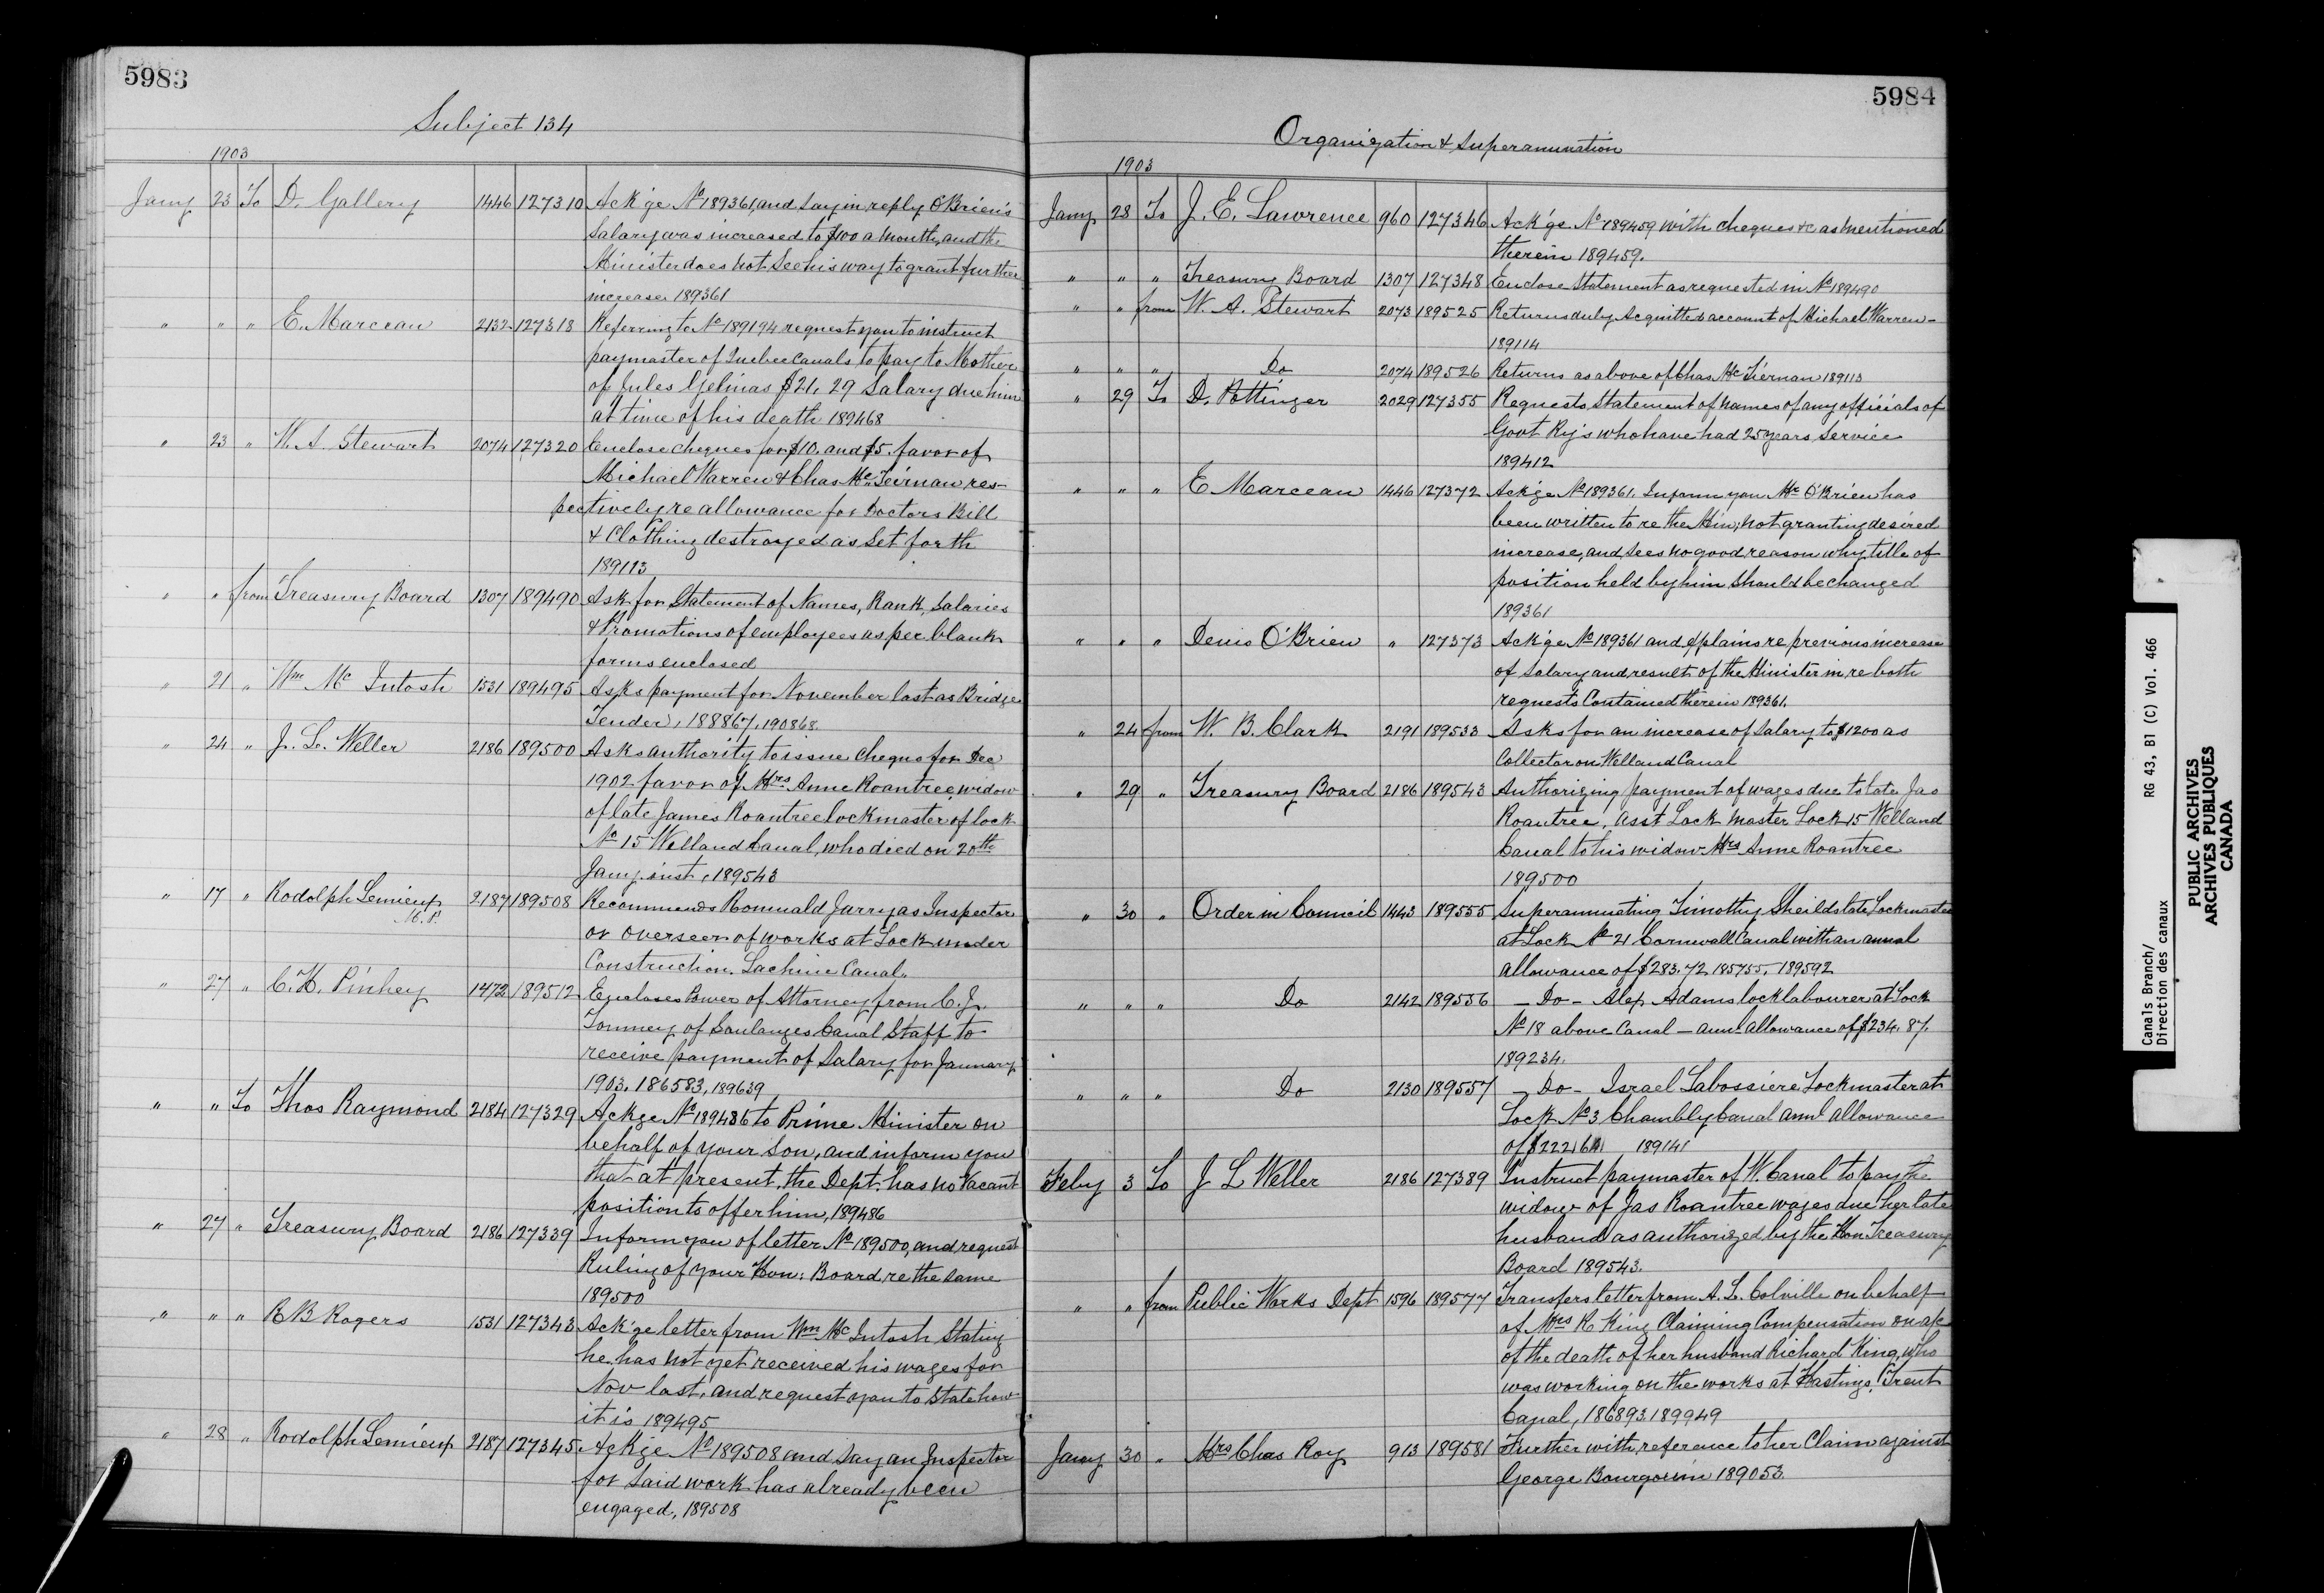 5983
Subject 134
1903
Jany 23 To D. Gallery 1446 127310 Ack'ge No 189361, and say in reply O'Brien's
Salary was increased to $100 a month, and the
Minister does not see his way to grant further
increase 189361
" " " E. Marceau 2132 127318 Referring to No 189194 request you to instruct
paymaster of Quebec Canals to pay to Mother
of Jules Gelinas $21.29 Salary due him
at time of his death 189468
" 23 " W. A. Stewart 2074 127320 Enclose cheques for $10. and $5. favor of
Michael Warren & Chas McTeirnan res-
pectively re allowance for Doctors Bill
& Clothing destroyed as set forth
189113
" " from Treasury Board 1307 189490 Ask for Statement of Names, Rank, Salaries
& Promotions of employees as per blank
forms enclosed
" 21 " Wm McIntosh 1531 189495 Asks payment for November last as Bridge
Tender, 188867, 190868
" 24 " J. L. Weller 2186 189500 Asks authority to issue cheque for Dec
1902 favor of Mrs Anne Roantree, widow
of late James Roantree lockmaster of lock
No 15 Welland Canal, who died on 20th
Jany inst, 189543
" 17 " Rodolph Lemieux 2187 189508 Recommends Romuald Jarry as Inspector
M.P.
or overseer of works at Lock under
Construction. Lachine Canal.
" 27 " C. H. Pinhey 1472 189512 Encloses Power of Attorney from C. J.
of Soulanges Canal Staff to
receive payment of Salary for January
1903. 186583, 189639
" " To Thos Raymond 2184 127329 Ackge No 189486 to Prime Minister on
behalf of your son, and inform you
that at present, the Dept. has no vacant
position to offer him, 189486
" 27 " Treasury Board 2186 127339 Inform you of letter No 189500, and request
Ruling of your Hon: Board, re the same
189500
" " " R B Rogers 1531 127343 Ack'ge letter from Wm McIntosh Stating
he has not yet received his wages for
Nov last, and request you to state how
it is 189495
" 28 " Rodolph Lemieux 2187 127345 Ackge No 189508 and say an Inspector
for said work has already been
engaged, 189508
5984
Organization & Superannuation
1903
Jany 28 To J. E. Lawrence 960 127346 Ack'ge No 189459 with cheques &c as mentioned
therein 189459.
" " " Treasury Board 1307 127348 Enclose Statement as requested in No 189490
" " from W. A. Stewart 2073 189525 Returns duly Acquitted account of Michael Warren-
189114
" " " Do 2074 189526 Returns as above of Chas McTiernan 189113
" 29 To D. Pottinger 2029 127355 Requests Statement of names of any officials of
Govt Ry's who have had 25 years service
189412
" " " E Marceau 1446 127372 Ack'ge No 189361. Inform you Mr O'Brien has
been written to re the Min; not granting desired
increase, and sees no good reason why title of
position held by him should be changed
189361
" " " Denis O'Brien " 127373 Ack'ge No 189361 and explains re previous increase
of salary and result of the Minister in re both
requests Contained therein 189361.
" 24 from W. B. Clark 2191 189533 Asks for an increase of salary to $1200 as
Collector on Welland Canal
" 29 " Treasury Board 2186 189543 Authorizing payment of wages due to late Jas
Roantree, Asst Lock Master Lock 15 Welland
Canal to his widow Mrs Anne Roantree
189500
" 30 " Order in Council 1443 189555 Superannuating Timothy Sheilds late Lockmaster
at Lock No 21 Cornwall Canal with an annual
allowance of $283.72 185755. 189592
" " " Do 2142 189556 - Do - Alex Adams lock labourer at Lock
No 18 above Canal - ann allowance of $234.87.
189234.
" " " Do 2130 189557 - Do - Israel Labossiere Lockmaster at
Lock No 3 Chambly Canal annl allowance
189141
Feby 3 To J L Weller 2186 127389 Instruct paymaster of W. Canal to pay the
widow of Jas Roantree wages due her late
husband as authorized by the Hon Treasury
Board 189543.
" " from Public Works Dept 1596 189577 Transfers letter from A. L. Colville on behalf
of Mrs R King Claiming Compensation on a/c
of the death of her husband Richard King, who
was working on the works at Hastings, Trent
Canal, 186893. 189949
Jany 30 " Mrs Chas Roy 913 189581 Further with reference to her Claim against
George Bourgouin 189053.
Canals Branch/
Direction des canaux
RG 43, B1 (C) Vol. 466
PUBLIC ARCHIVES
ARCHIVES PUBLIQUES
CANADA